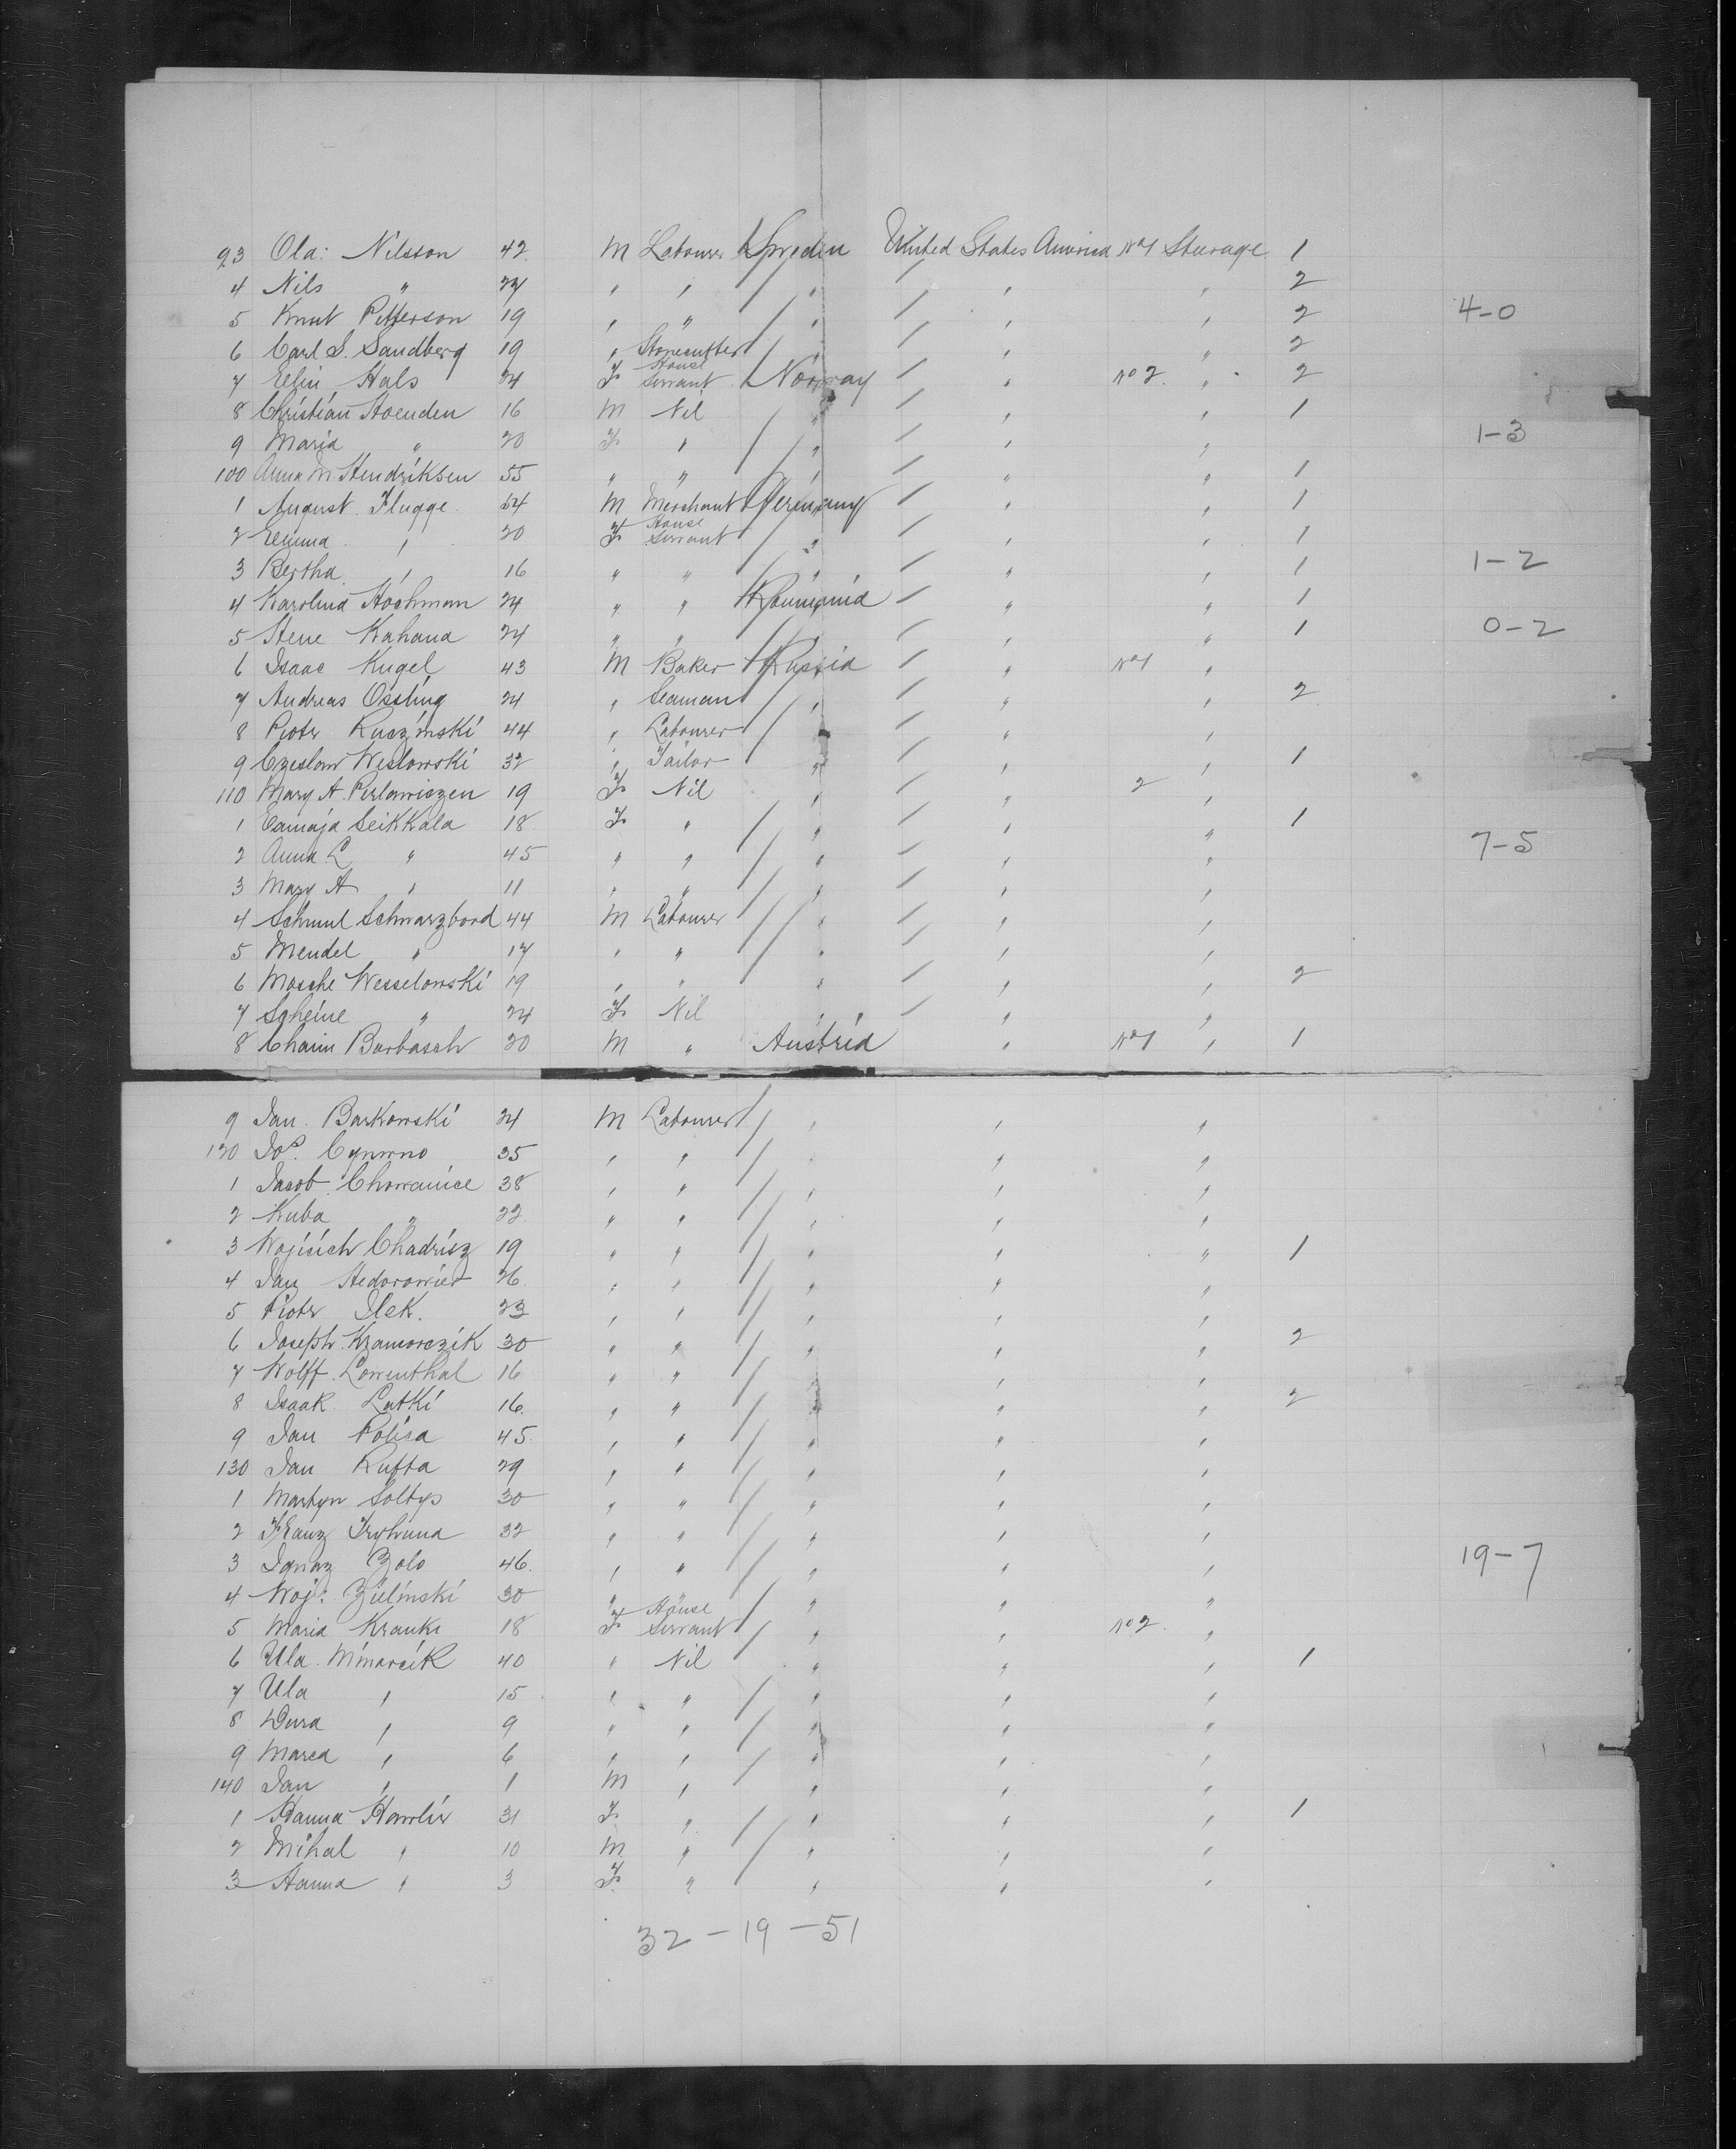 93 Ola: Nilsson 42 M Labourer Sweden United States America No 1 Steerage 1
4 Nils " 27 " " " " " 2
5 Knut Petterson 19 " " " " " 2 4-0
6 Carl S. Sandberg 19 " Stonecutter " " " 2
7 Elin Hals 24 F House Servant Norway " No 2. " 2
8 Christian Hoenden 16 M Nil " " " 1
9 Maria " 20 F " " " " 1-3
100 Anna M Hendriksen 55 " " " " " 1
1 August Flugge 54 M Merchant Germany " " 1
2 Emma " 20 F House Servant " " " 1
3 Bertha " 16 " " " " " 1 1-2
4 Karolina Hochman 24 " " Roumania " " 1
5 Stene Kahana 24 " " " " " 1 0-2
6 Isaac Kugel 43 M Baker Russia " No 1 "
7 Andreas Ossling 24 " Seaman " " " 2
8 Piotr Ruszinski 44 " Labourer " " "
9 Czeslaw Weslowski 32 " Tailor " " " 1
110 Mary A. 19 F Nil " " 2 "
1 Seikkala 18 F " " " " 1
2 Anna L " 45 " " " " " 7-5
3 Mary A " 11 " " " " "
4 Schmul Schwarzbord 44 M Labourer " " "
5 Mendel " 17 " " " " "
6 Mosche Wesselowski 19 " " " " " 2
7 Scheine " 24 F Nil " " "
8 Chaim Barbasch 20 M " Austria " No 1 " 1
9 Jan Barkowski 24 M Labourer " " "
120 Jos. 35 " " " " "
1 Jacob Chowaniec 38 " " " " "
2 Kuba " 22 " " " " "
3 Wojciech Chadrisz 19 " " " " " 1
4 Jan 26 " " " " "
5 Piotr Ilek. 23 " " " " "
6 Joseph Kramorczik 30 " " " " " 2
7 Wolff Lowenthal 16 " " " " "
8 Isaak Lutki 16. " " " " " 2
9 Jan Polisa 45 " " " " "
130 Jan Rufta 29 " " " " "
1 Martyn Soltys 30 " " " " "
2 Franz Tryhuna 32 " " " " "
3 Ignaz Zolo 46. " " " " " 19-7
4 Woj: Zielinski 30 " " " " "
5 Maria Kranki 18 F House Servant " " No 2. "
6 Ula Minarcik 40 " Nil " " " 1
7 Ula " 15 " " " " "
8 Dura " 9 " " " " "
9 Marea " 6 " " " " "
140 Jan " 1 M " " " "
1 Hanna Hawlir 31 F " " " " 1
2 Mihal " 10 M " " " "
3 Hanna " 3 F " " " "
32-19-51